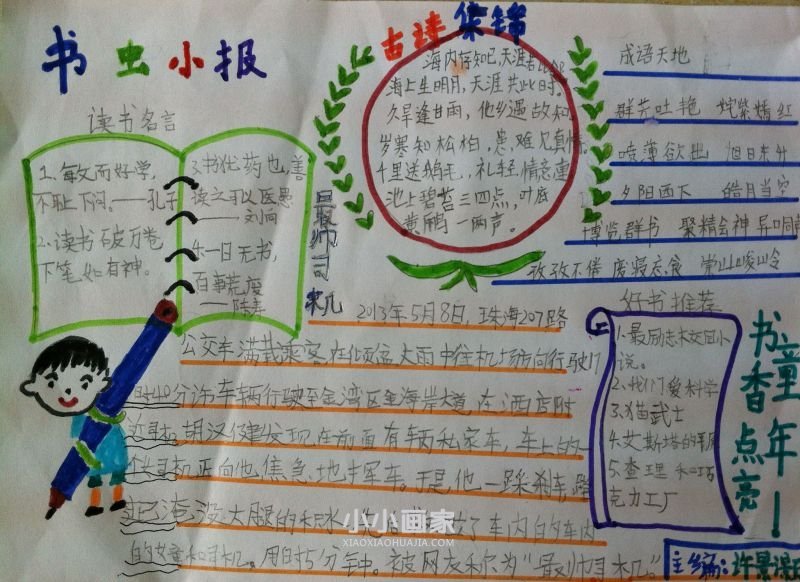 书虫小报
读书名言
1.每文而好学,
不耻下问。——孔子
2.读书破万卷
下笔如有神。
3.书犹药也,善
读之可以医愚
——刘向
4.一日无书,
百事荒废
——陈寿
古诗集锦
海内存知己,天涯若比邻
海上生明月,天涯共此时。
久旱逢甘雨,他乡遇故知
岁寒知松柏,患难见真情。
千里送鹅毛,礼轻情意重
池上碧苔三四点,叶底
黄鹂一两声。
成语天地
群芳吐艳 姹紫嫣红
喷薄欲出 旭日东升
夕阳西下 皓月当空
博览群书 聚精会神 异口同
孜孜不倦 废寝忘食 崇山峻岭
最帅司机
2013年5月8日,珠海207路
公交车满载乘客在倾盆大雨中往机场方向行驶17
时40分许,车辆行驶至金湾区金海岸大道,在酒店附
近司机胡汉健发现在前面有辆私家车,车上的
司机正向他焦急地挥车。于是他一踩刹车,
没大腿的积水 了车内
的女童和司机。用时5分钟。被网友称为“最帅司机”
好书推荐
1.最励志木交园小
说。
2.我们爱科学
3.猫武士
4.艾斯塔的
5.查理和巧
克力工厂
书香点亮
童年!
主编:许
小小画家
XIAOXIAOHUAJIA.COM